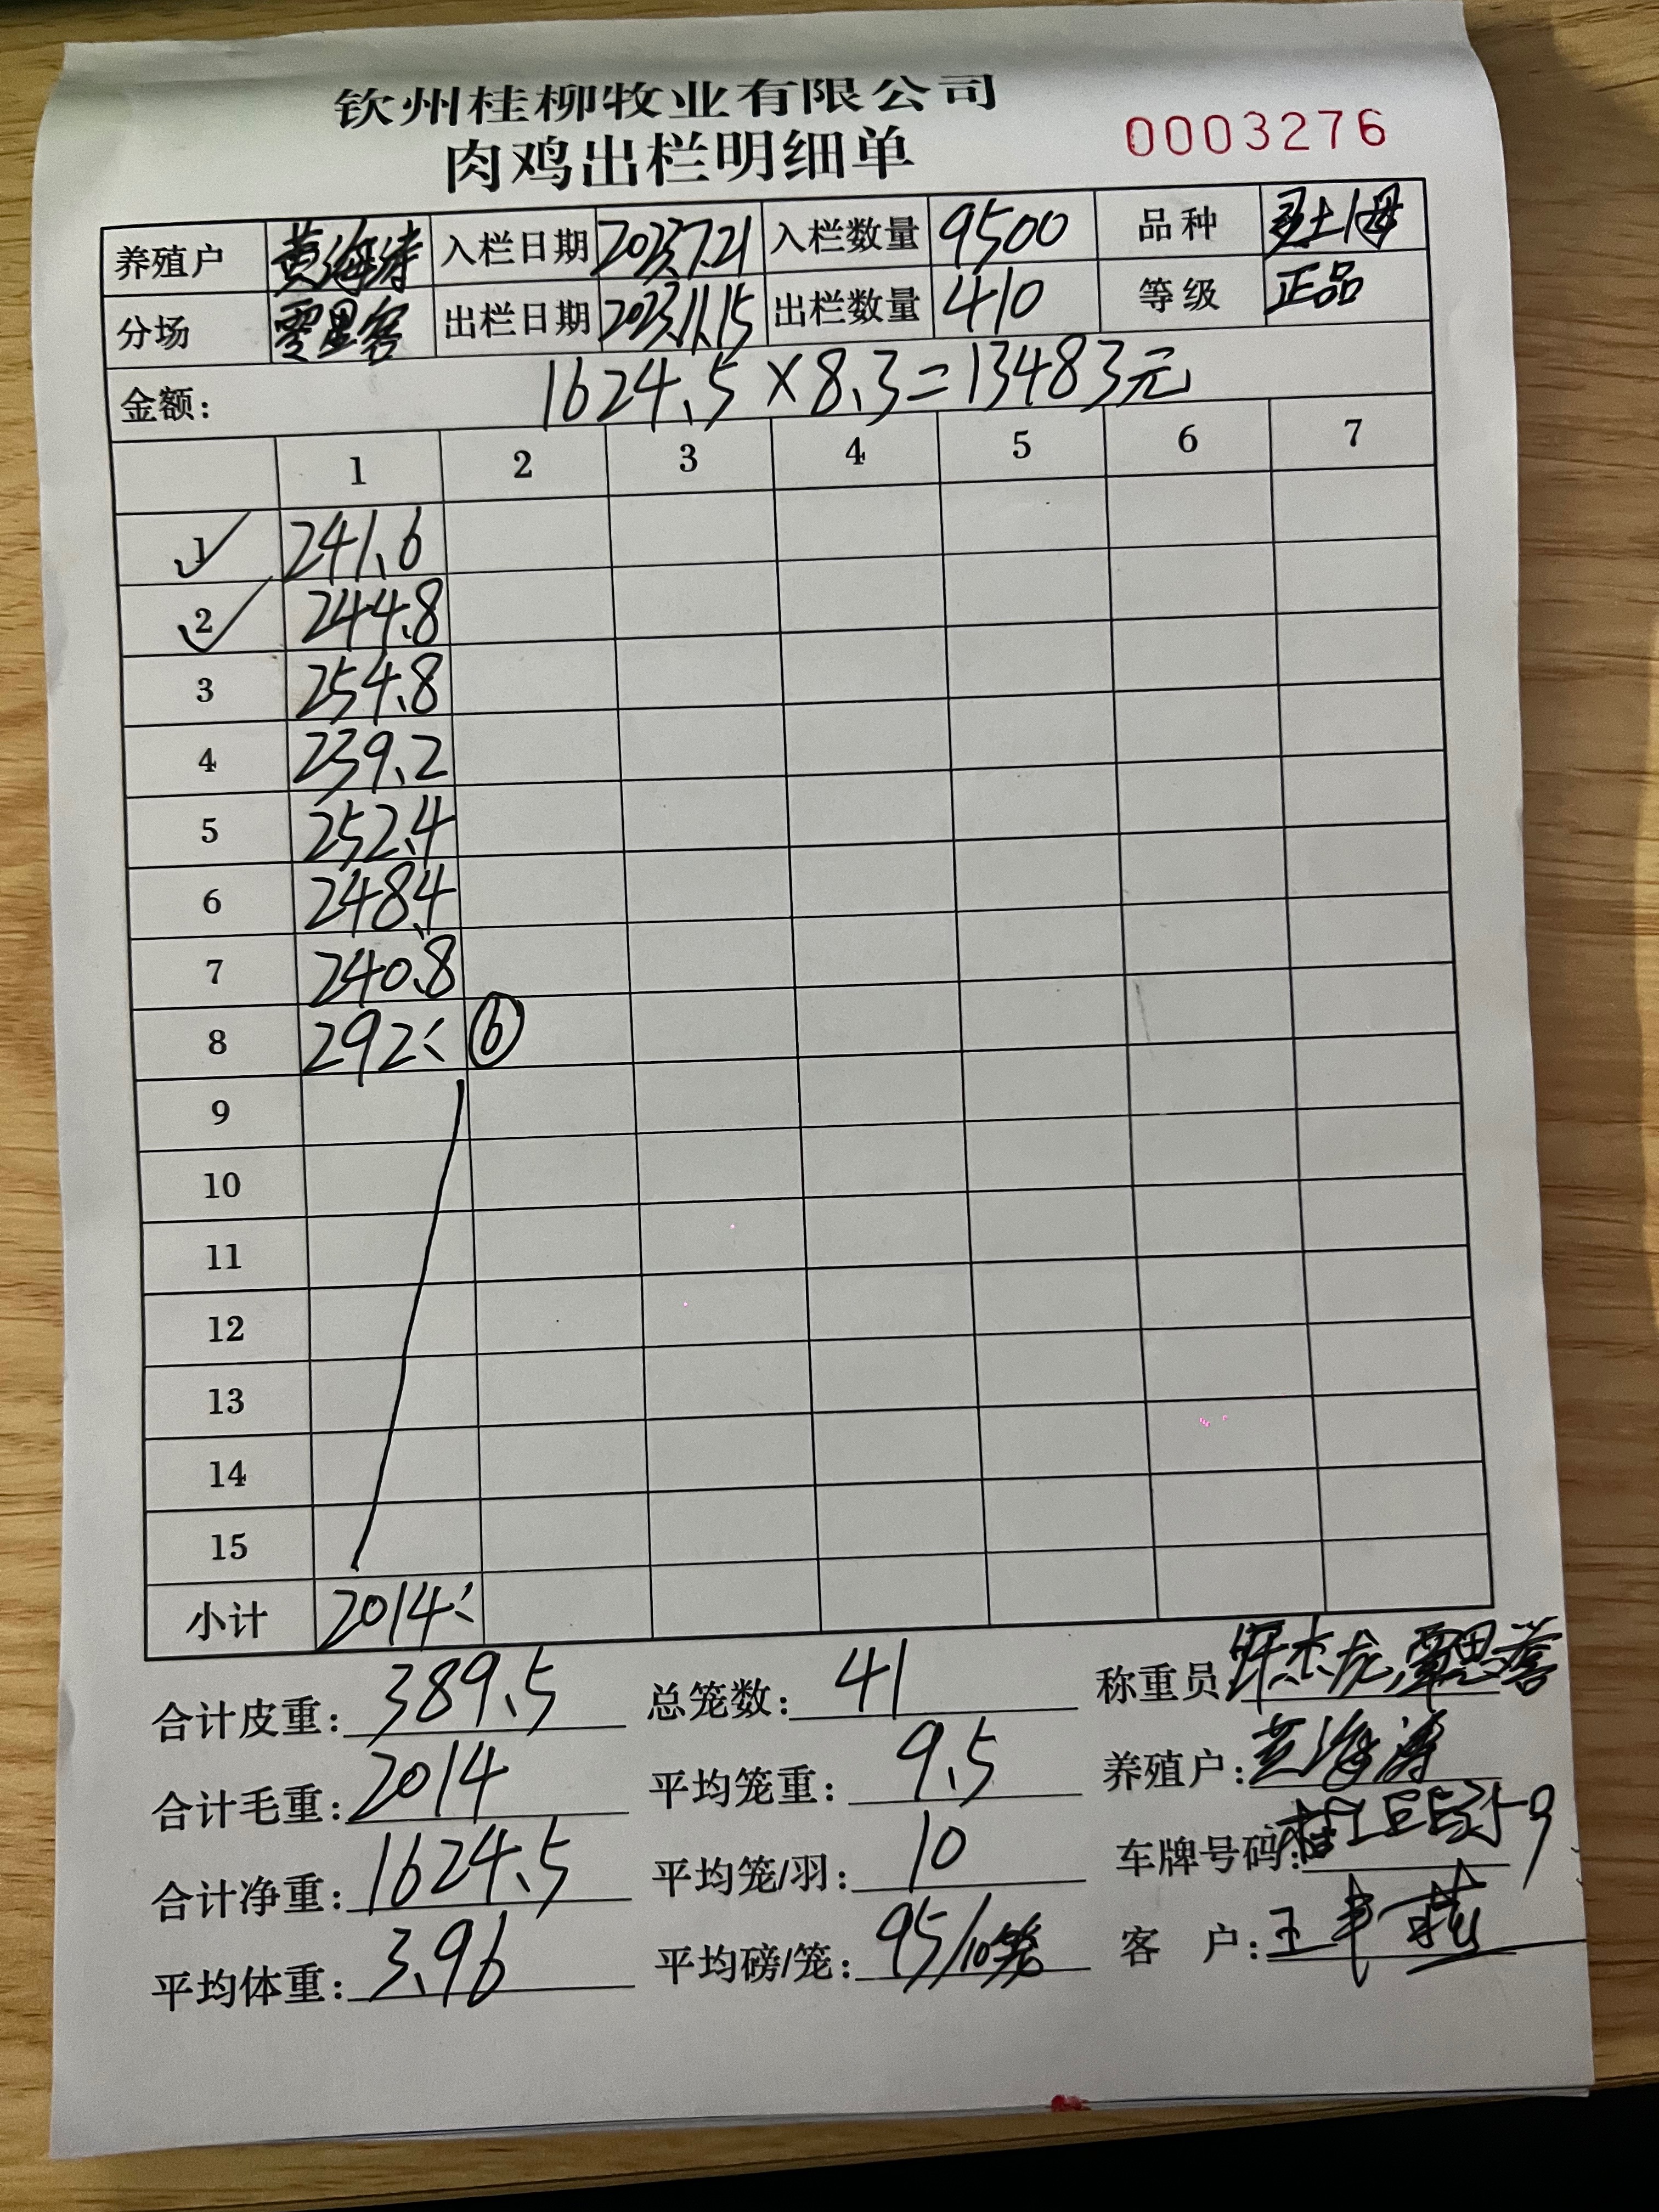 钦州桂柳牧业有限公司
肉鸡出栏明细单 0003276
养殖户 黄海涛 入栏日期 2023.7.21 入栏数量 9500 品种
分场 出栏日期 2023.11.15 出栏数量 410 等级 正品
金额: 1624.5×8.3=13483元
1 2 3 4 5 6 7
1 241.6
2 244.8
3 254.8
4 239.2
5 252.4
6 248.4
7 240.8
8 292 6
9
10
11
12
13
14
15
小计 2014
合计皮重: 389.5 总笼数: 41 称重员
合计毛重: 2014 平均笼重: 9.5 养殖户: 黄海涛
合计净重: 1624.5 平均笼/羽: 10 车牌号码:
平均体重: 3.96 平均磅/笼: 95/10笼 客 户: